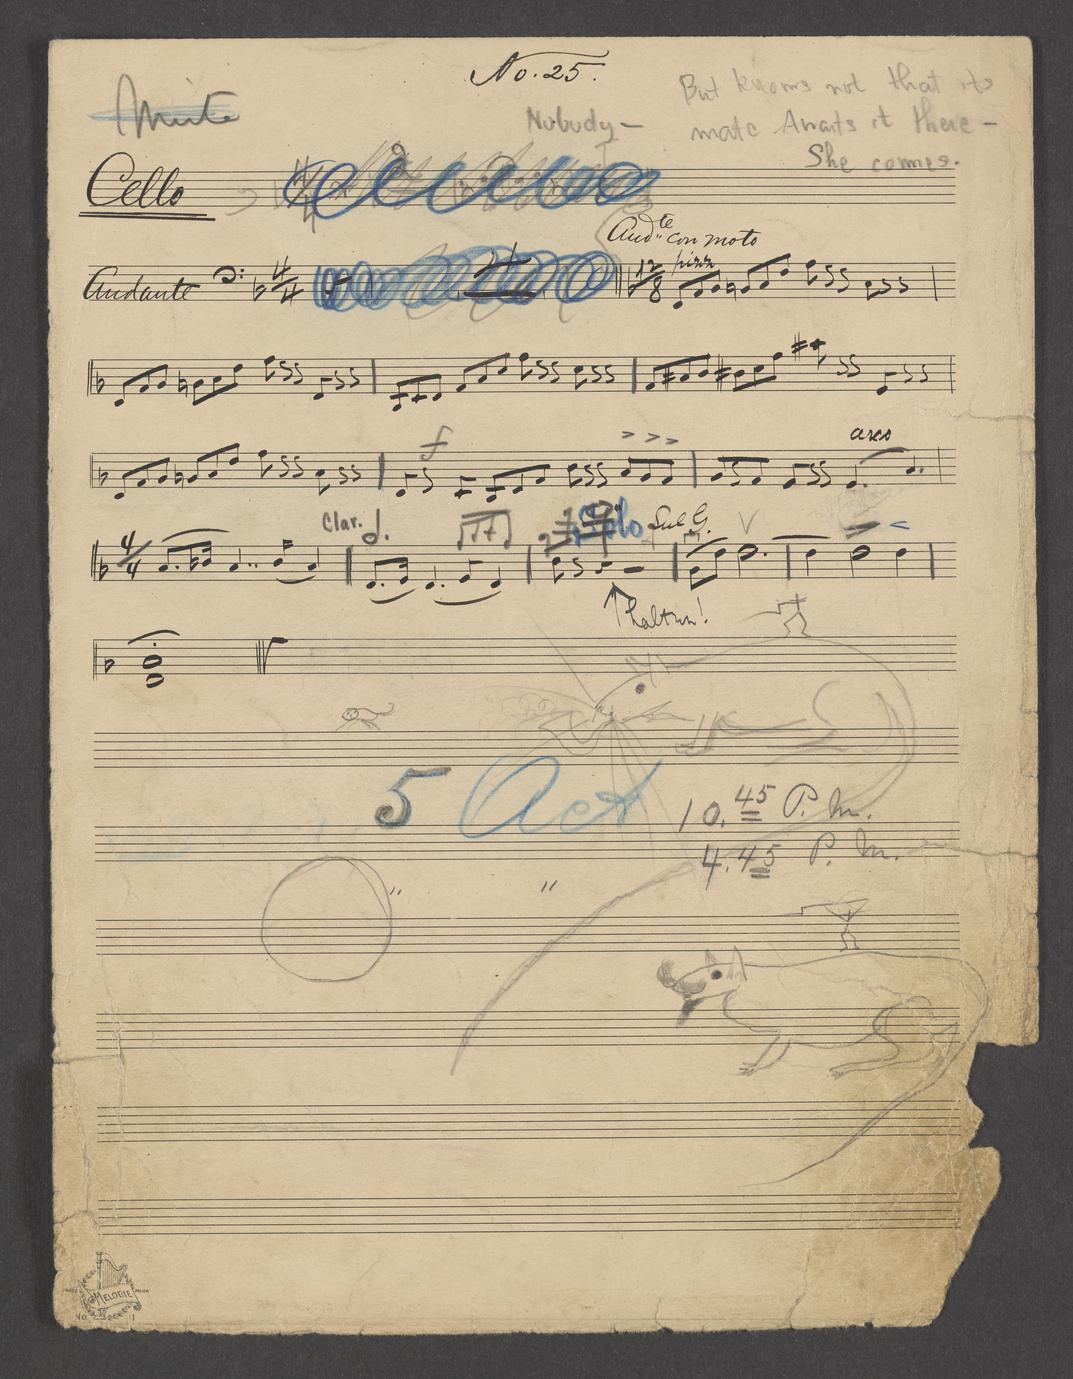 No. 25.
Mute
Nobody —
But knows not that its
mate Awaits it there —
She comes.
Cello
And.te con moto
Andante 4/4
12/8 pizz
f
> > >
arco
Clar.
Solo Sul G.
4/4
5 Act
10.45 P. M.
4.45 P. M.
" "
MELODIE